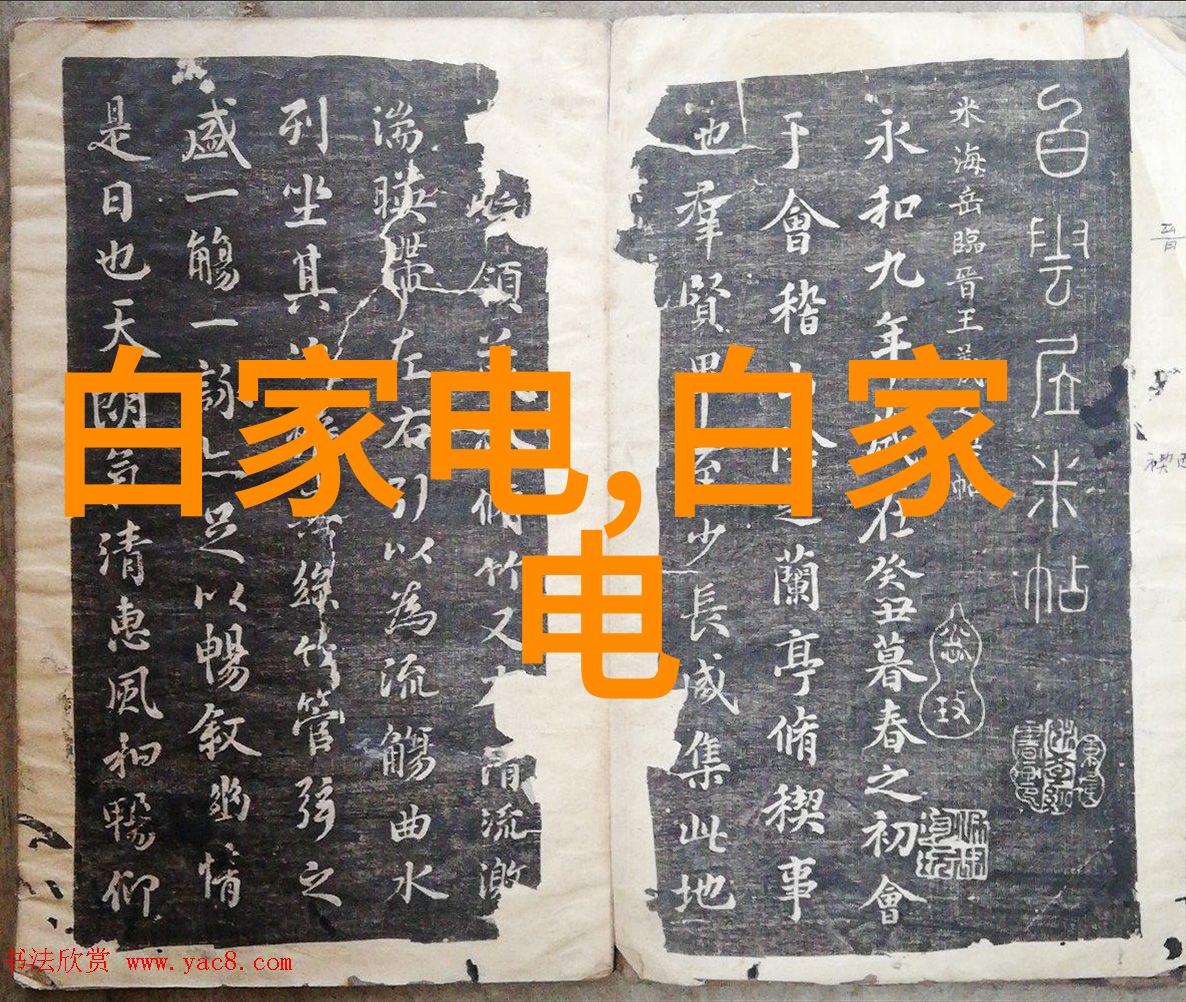 白家电,白家
电
白雲居米帖
米海岳臨晉王羲之帖
永和九年歲在癸丑暮春之初會
于會稽山陰之蘭亭脩稧事
也羣賢畢至少長咸集此地
領茂林脩竹又有清流激
湍暎帶左右引以為流觴曲水
列坐其次雖無絲竹管弦之
盛一觴一詠亦足以暢叙幽情
是日也天朗氣清惠風和暢仰
书法欣赏 www.yac8.com